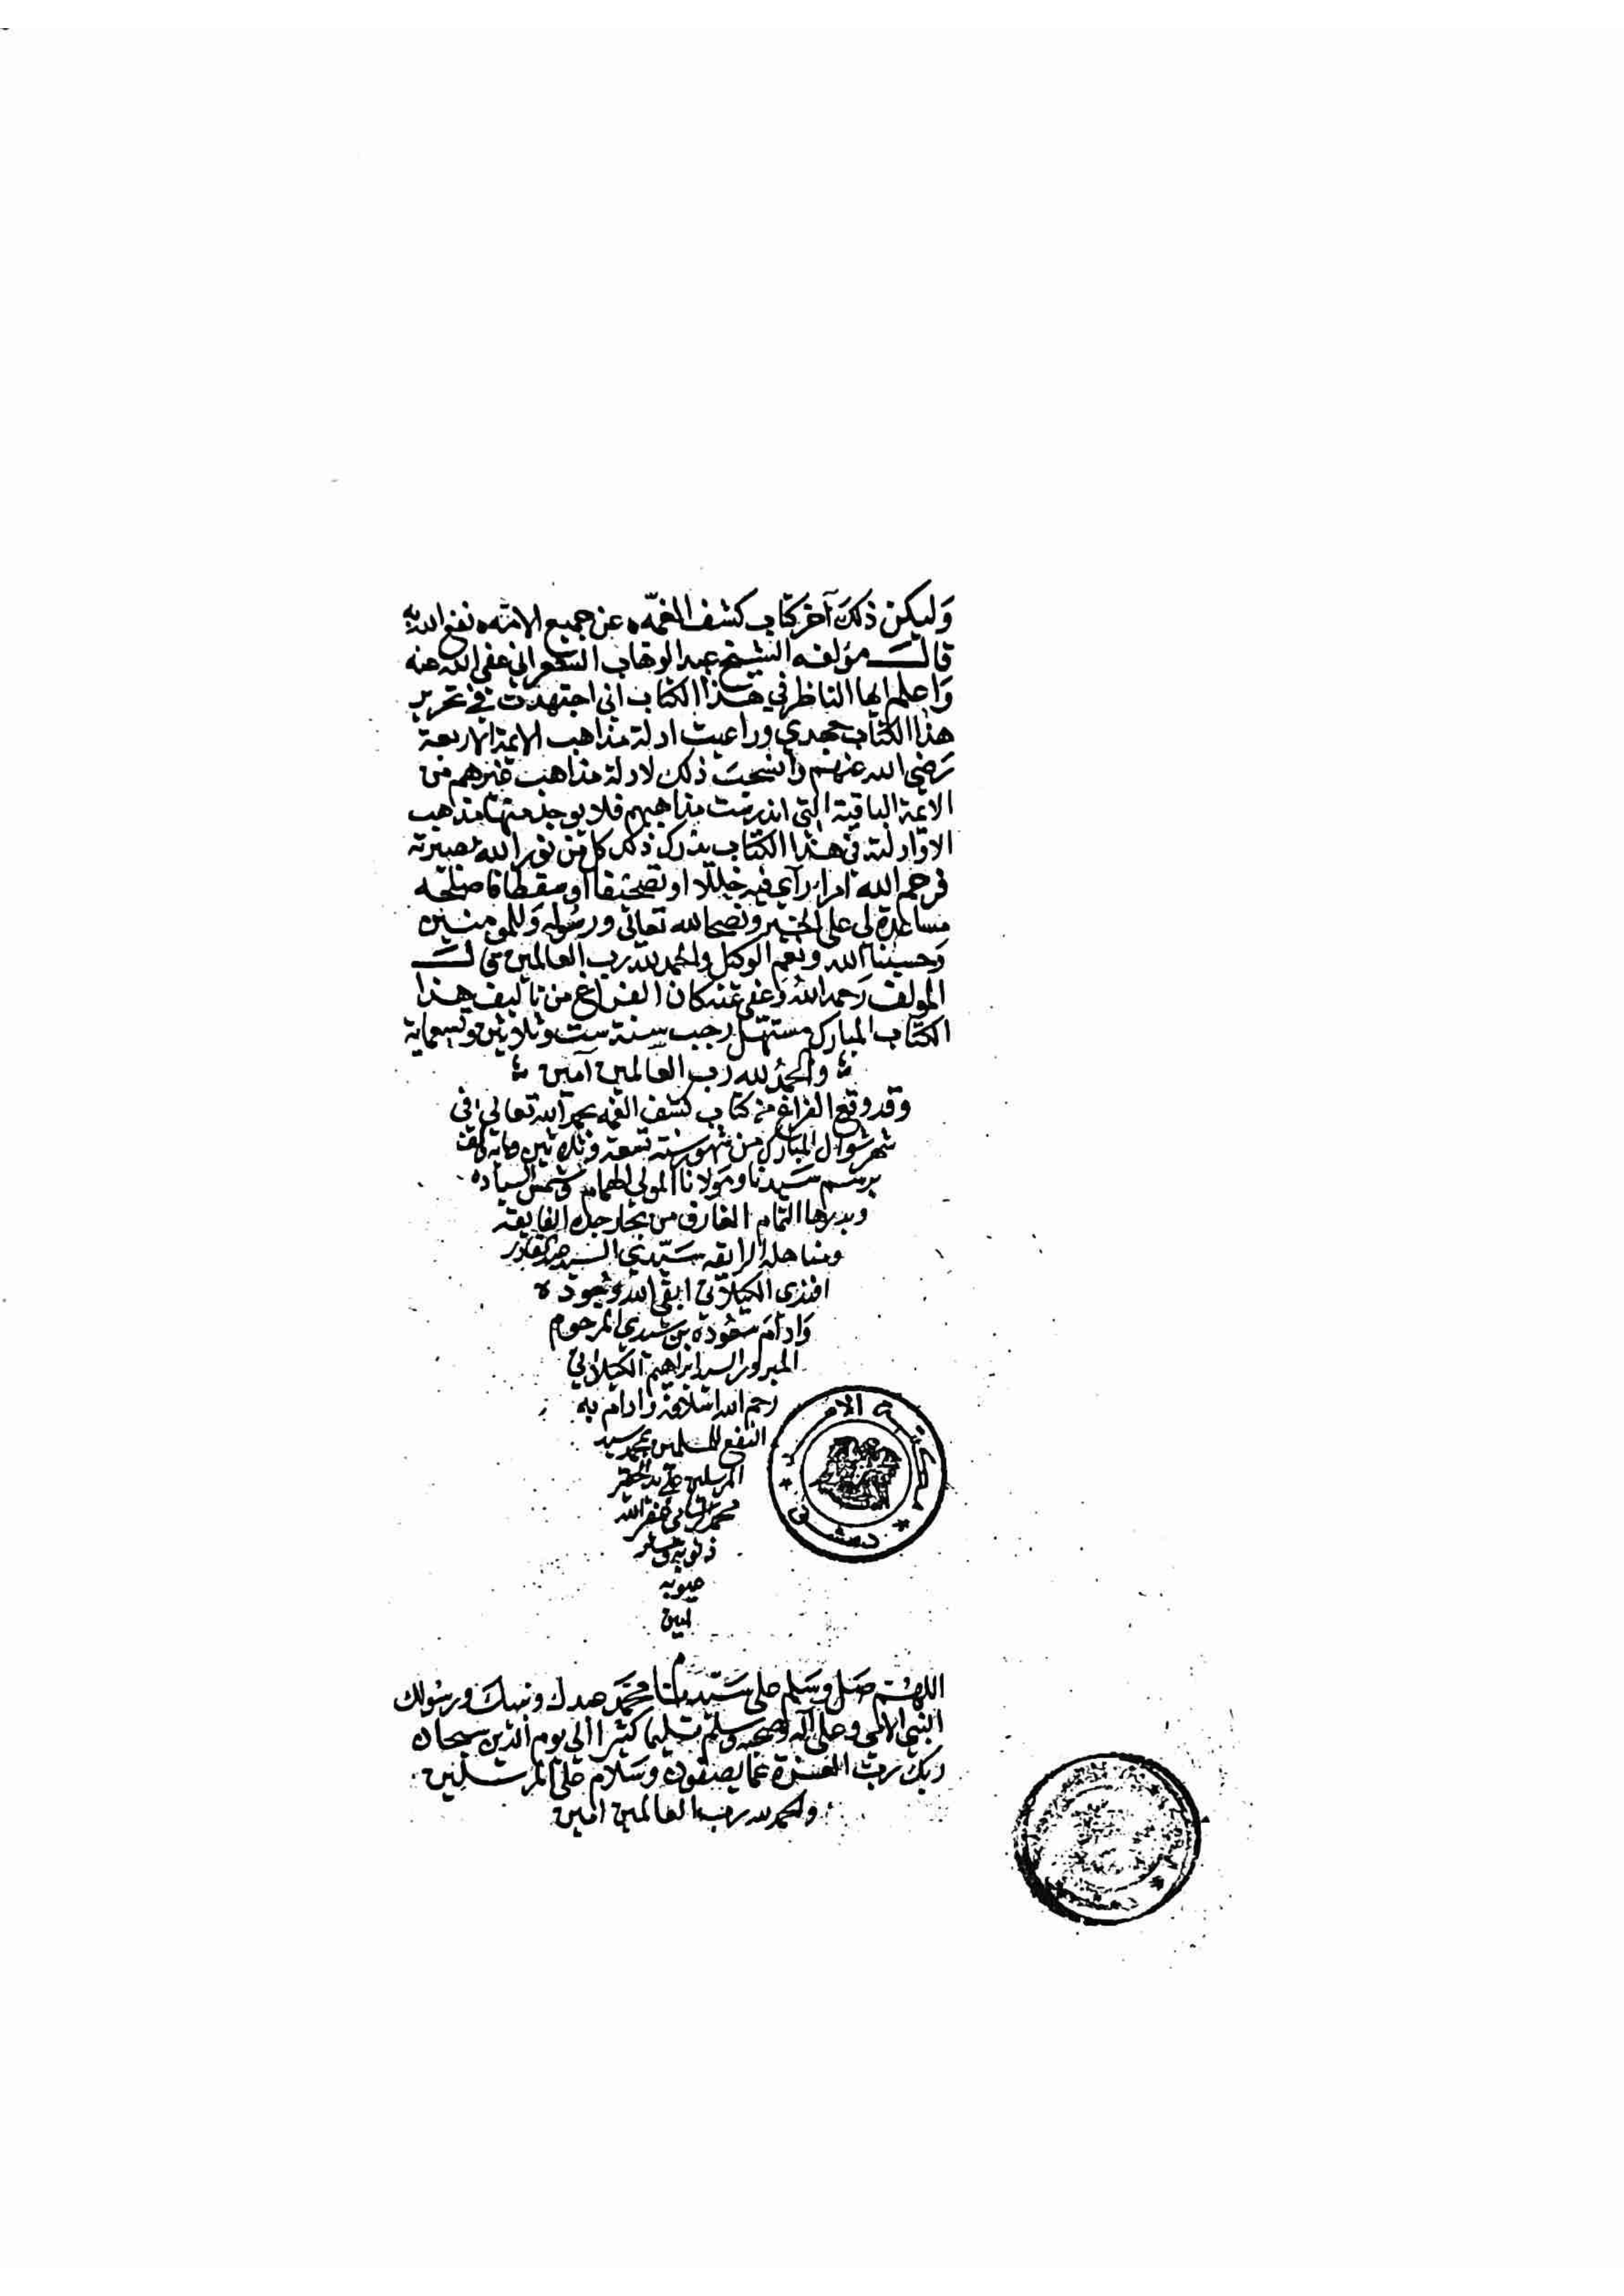 وَليكن ذلك آخر كتاب كشف الغمّه عن جميع الامّه نفع الله به
قال مؤلفه الشيخ عبد الوهاب الشعراني عفى الله عنه
وَاعلم ايها الناظر في هذا الكتاب اني اجتهدت في تحرير
هذا الكتاب جهدي وراعيت ادلة مذاهب الايمة الاربعة
رَضي الله عنهم وانسحبَ ذلك لادلة مذاهب غيرهم من
الايمة الباقية التي اندرست مذاهبهم فلا يوجد منها مذهب
الا وادلته في هذا الكتاب يدرك ذلك كل من نور الله بصيرته
فرحم الله امرا رآى فيه خللا او تصحيفا او سقطا فاصلحه
مساعدة لي على الخير ونصحا لله تعالى ورسُوله وَللمومنين
وَحسبنا الله ونعم الوكيل والحمد لله رب العالمين قال
المولف رَحمه الله وَعفى عنه كان الفراغ من تاليف هذا
الكتاب المبارك مستهل رجب سنة ست وثلاثين وتسعماية
والحمدُ لله رَب العالمين آمين
وقد وقع الفراغ من كتاب كشف الغمه بحمد الله تعالى في
شهر شوال المبارك من شهور سنة تسعة وثلاثين وماية والف
برَسم سَيدنا ومَولانا المولى الهمام وشمس السياده
وبدرها التمام الغارق من بحار جده الفايقة
ومناهله الرايقه سَيّدي السيد عبد القادر
افندى الكيلاني ابقى الله وجوده
وَادامَ سعُوده بن سَيدي المرحوم
المبرور السيد ابراهيم الكيلاني
رحم الله اسلافه وادام به
النفع للمسلمين بمحمد سيد
المرسلين على يد الحقير
محمد غفر الله
ذنوبه وستر
عيوبه
امين
مكتبة الاسد
دمشق
اللهُم صَل وسَلم على سَيّدنا محَمّد عبدك ونبيكَ ورسُولك
النبي الامي وعلى آله وصحبه وسلم تسليما كثيرا الى يوم الدين سبحان
ربك رَبّ العزة عما يصفون وسَلام على المرسَلين
والحمد لله رب العالمين امين